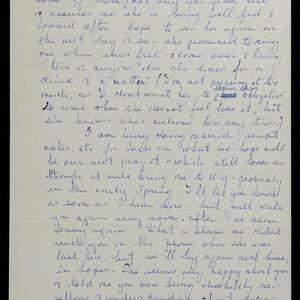 some of them, not very far from here
& assures me she is being well fed &
looked after. Hope to see her again in
the next day or so - she promised to ring
me when she's free & come over & bring
or anyone else she likes for a
drink & a natter. I'm not pressing it too
much, as I don't want her to think she's obligated
to come when she doesn't feel like it, but
she knows she's welcome here any time.
I am busy doing research, script
notes, etc, for Jack on what we hope will
be our next project - which still looks as
though it will bring me to N.Y. probably
in the early Spring. I'll let you know
as soon as I hear more - but will write
you again very soon, after I've seen
Jenny again. What a shame we didn't
reach you on the 'phone when she was
last here, but we'll try again next time,
in hopes. She seems very happy about you
& told me you were being absolutely mar-
vellous & understanding about